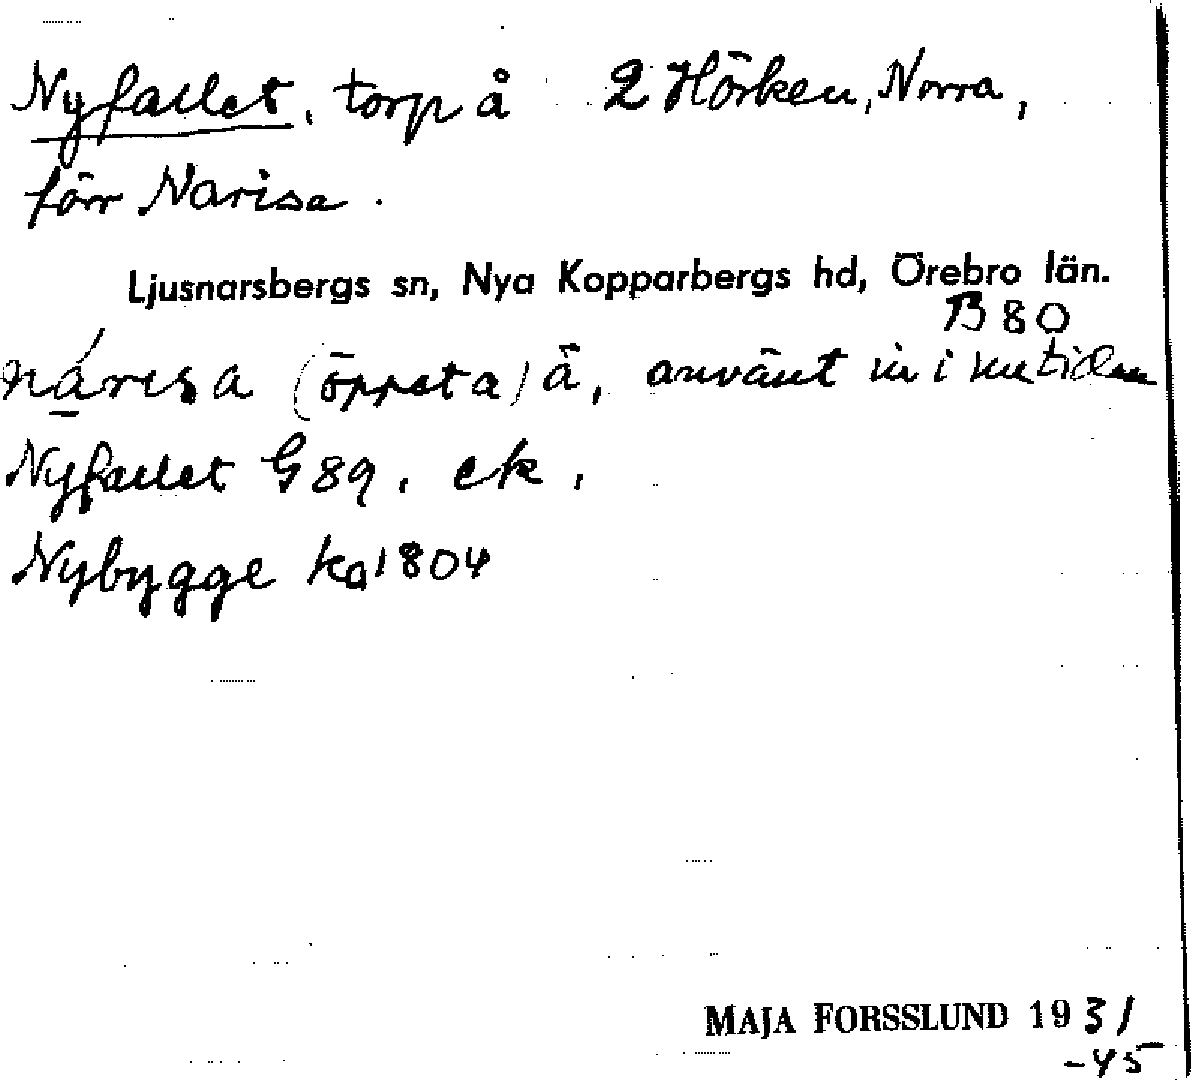 Nyfallet, torp å 2 Hörken, Norra,
förr Narisa.
Ljusnarsbergs sn, Nya Kopparbergs hd, Örebro län.
B 80
nárisa (öppet a) ä, använt in i nutiden
Nyfallet G 89, ek,
Nybygge ka 1804
MAJA FORSSLUND 1931
-45